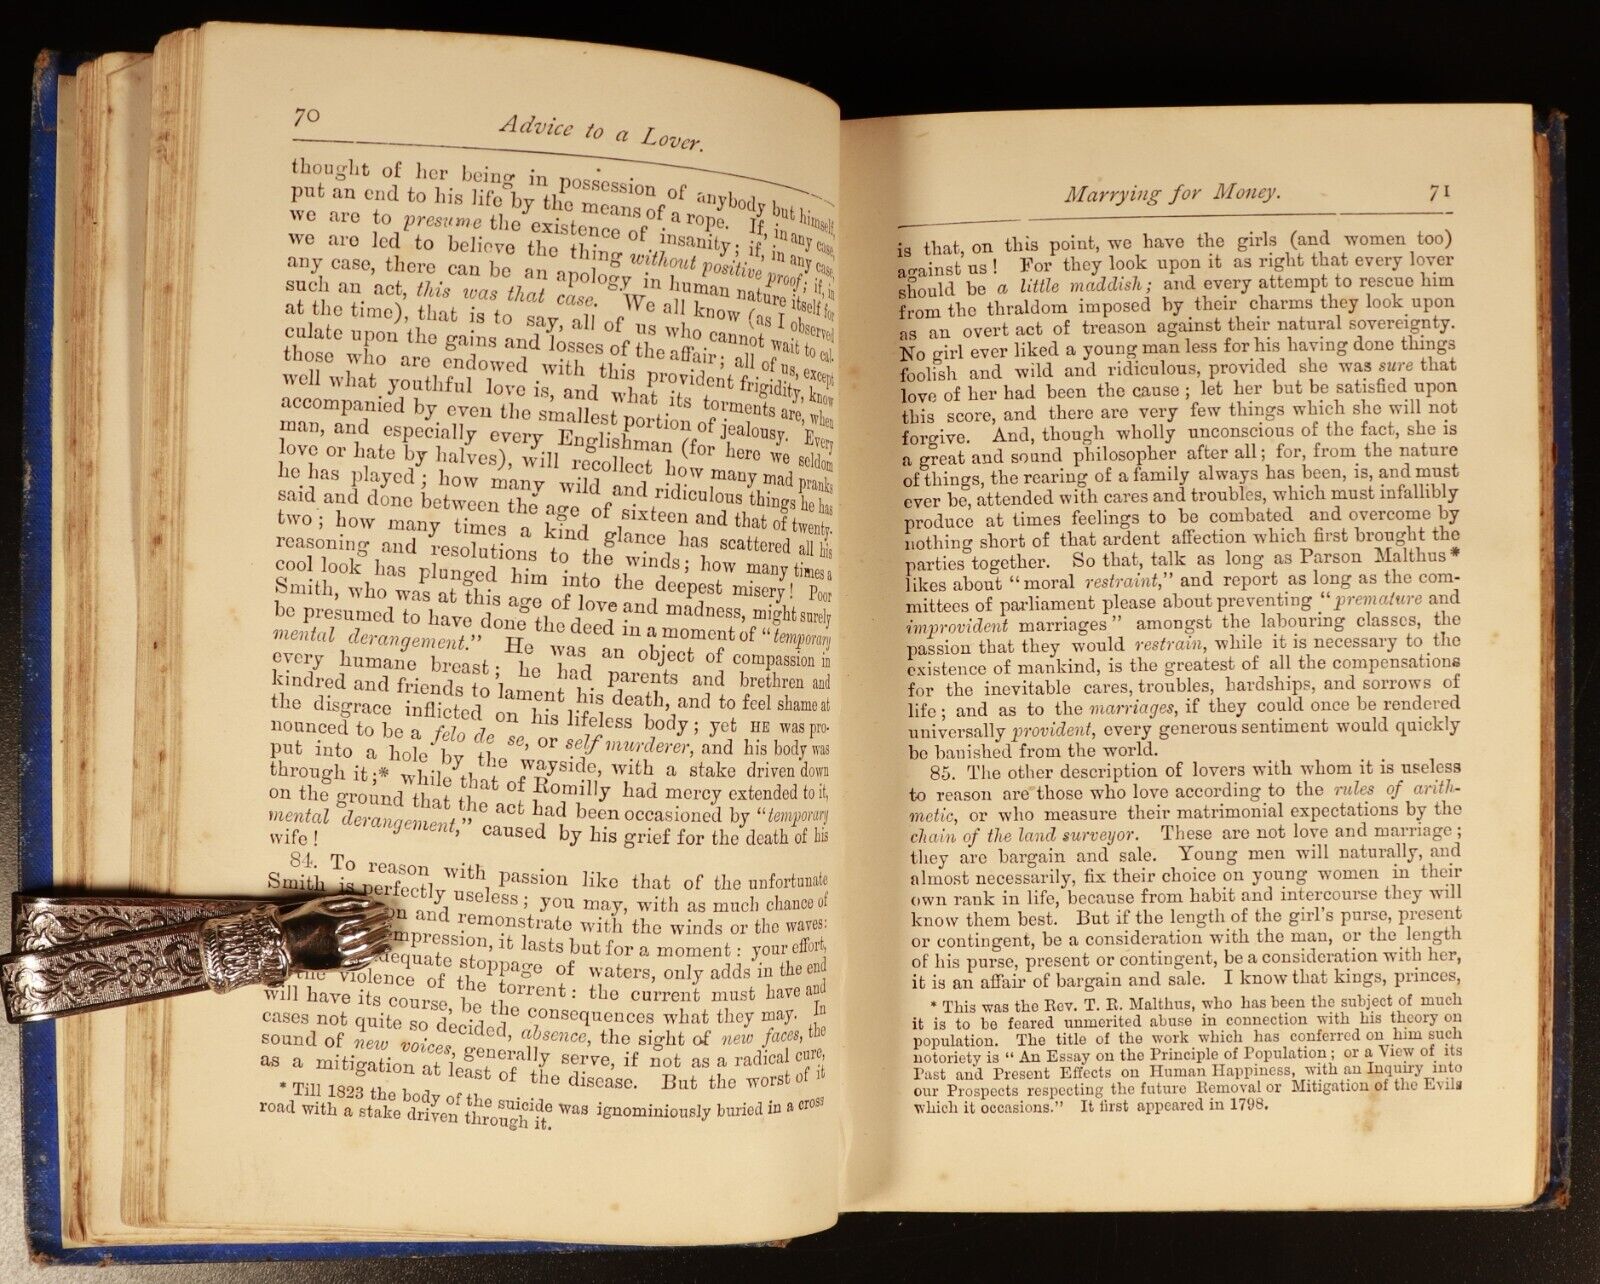 70
Advice to a Lover.
thought of her being in possession of anybody but himself,
put an end to his life by the means of a rope. If, in any case,
we are to presume the existence of insanity; if, in any case,
we are led to believe the thing without positive proof; if, in
any case, there can be an apology in human nature itself for
such an act, this was that case. We all know (as I observed
at the time), that is to say, all of us who cannot wait to cal-
culate upon the gains and losses of the affair; all of us, except
those who are endowed with this provident frigidity, know
well what youthful love is, and what its torments are, when
accompanied by even the smallest portion of jealousy. Every
man, and especially every Englishman (for here we seldom
love or hate by halves), will recollect how many mad pranks
he has played; how many wild and ridiculous things he has
said and done between the age of sixteen and that of twenty-
two; how many times a kind glance has scattered all his
reasoning and resolutions to the winds; how many times a
cool look has plunged him into the deepest misery! Poor
Smith, who was at this age of love and madness, might surely
be presumed to have done the deed in a moment of "temporary
mental derangement." He was an object of compassion in
every humane breast; he had parents and brethren and
kindred and friends to lament his death, and to feel shame at
the disgrace inflicted on his lifeless body; yet HE was pro-
nounced to be a felo de se, or self murderer, and his body was
put into a hole by the wayside, with a stake driven down
through it;* while that of Romilly had mercy extended to it,
on the ground that the act had been occasioned by "temporary
mental derangement," caused by his grief for the death of his
wife!
84. To reason with passion like that of the unfortunate
Smith is perfectly useless; you may, with as much chance of
and remonstrate with the winds or the waves:
mpression, it lasts but for a moment: your effort,
dequate stoppage of waters, only adds in the end
the violence of the torrent: the current must have and
will have its course, be the consequences what they may. In
cases not quite so decided, absence, the sight of new faces, the
sound of new voices, generally serve, if not as a radical cure,
as a mitigation at least of the disease. But the worst of it
* Till 1823 the body of the suicide was ignominiously buried in a cross
road with a stake driven through it.
Marrying for Money.
71
is that, on this point, we have the girls (and women too)
against us! For they look upon it as right that every lover
should be a little maddish; and every attempt to rescue him
from the thraldom imposed by their charms they look upon
as an overt act of treason against their natural sovereignty.
No girl ever liked a young man less for his having done things
foolish and wild and ridiculous, provided she was sure that
love of her had been the cause; let her but be satisfied upon
this score, and there are very few things which she will not
forgive. And, though wholly unconscious of the fact, she is
a great and sound philosopher after all; for, from the nature
of things, the rearing of a family always has been, is, and must
ever be, attended with cares and troubles, which must infallibly
produce at times feelings to be combated and overcome by
nothing short of that ardent affection which first brought the
parties together. So that, talk as long as Parson Malthus*
likes about "moral restraint," and report as long as the com-
mittees of parliament please about preventing "premature and
improvident marriages" amongst the labouring classes, the
passion that they would restrain, while it is necessary to the
existence of mankind, is the greatest of all the compensations
for the inevitable cares, troubles, hardships, and sorrows of
life; and as to the marriages, if they could once be rendered
universally provident, every generous sentiment would quickly
be banished from the world.
85. The other description of lovers with whom it is useless
to reason are those who love according to the rules of arith-
metic, or who measure their matrimonial expectations by the
chain of the land surveyor. These are not love and marriage;
they are bargain and sale. Young men will naturally, and
almost necessarily, fix their choice on young women in their
own rank in life, because from habit and intercourse they will
know them best. But if the length of the girl's purse, present
or contingent, be a consideration with the man, or the length
of his purse, present or contingent, be a consideration with her,
it is an affair of bargain and sale. I know that kings, princes,
* This was the Rev. T. R. Malthus, who has been the subject of much
it is to be feared unmerited abuse in connection with his theory on
population. The title of the work which has conferred on him such
notoriety is "An Essay on the Principle of Population; or a View of its
Past and Present Effects on Human Happiness, with an Inquiry into
our Prospects respecting the future Removal or Mitigation of the Evils
which it occasions." It first appeared in 1798.